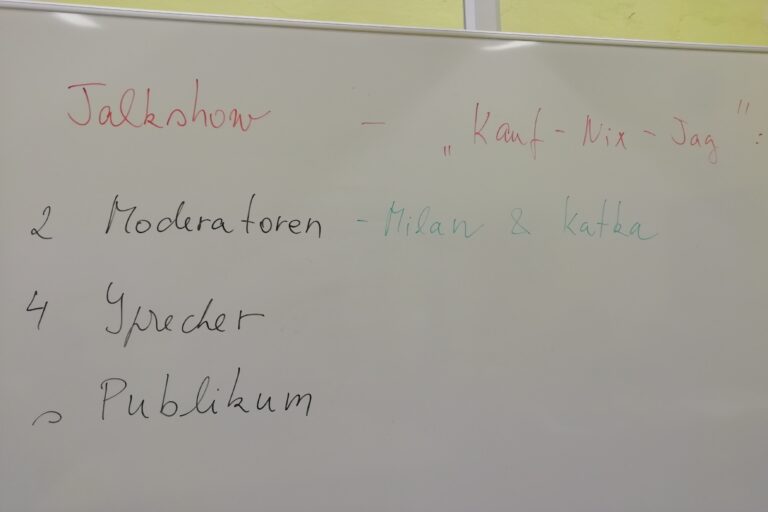 Talkshow - „Kauf-Nix-Tag":
2 Moderatoren - Milan & Katka
4 Sprecher
Publikum